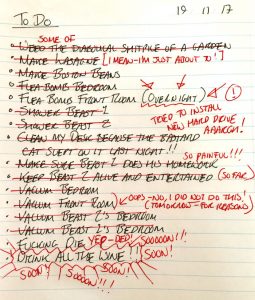 19 11 17
To Do
SOME OF
• WEED THE DIABOLICAL SHITPILE OF A GARDEN
• MAKE LASAGNE [I MEAN - I'M JUST ABOUT TO!]
• MAKE BOSTON BEANS
• FLEA BOMB BEDROOM
• FLEA BOMB FRONT ROOM (OVERNIGHT) !
• SHOWER BEAST 1
TRIED TO INSTALL
• SHOWER BEAST 2
NEW HARD DRIVE!
• CLEAN MY DESK BECAUSE THE BASTARD
AAARGH!
CAT SLEPT ON IT LAST NIGHT!!
SO PAINFUL!!!
• MAKE SURE BEAST 2 DOES HIS HOMEWORK
• KEEP BEAST 2 ALIVE AND ENTERTAINED (SO FAR)
• VACUUM BEDROOM
• VACUUM FRONT ROOM) (OOPS - NO, I DID NOT DO THIS!
(TOMORROW - FOR REASONS)
• VACUUM BEAST 2'S BEDROOM
• VACUUM BEAST 1'S BEDROOM
• FUCKING DIE YEP - DED! SOOOOON!!!
• DRINK ALL THE WINE!!! SOON!
SOON! SOON! SOON!
SOOOON!!!